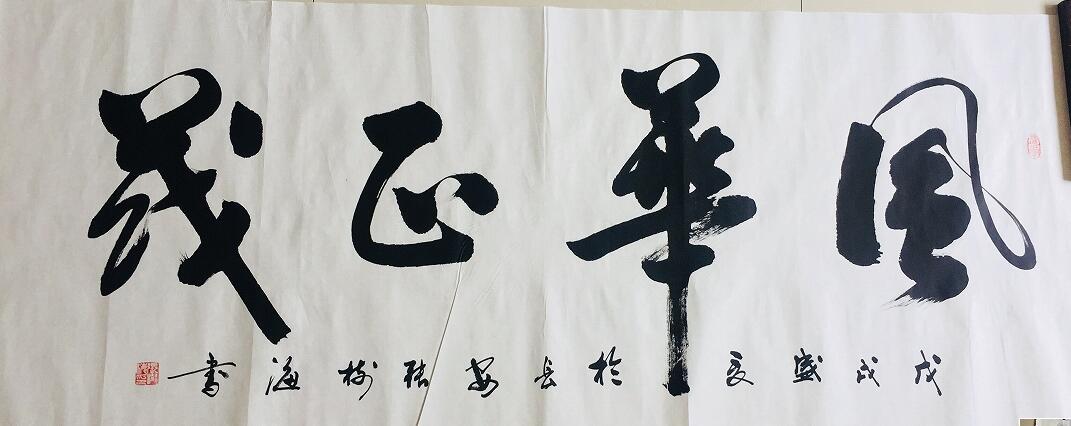 風華正茂
戊戌盛夏於長安張樹海書